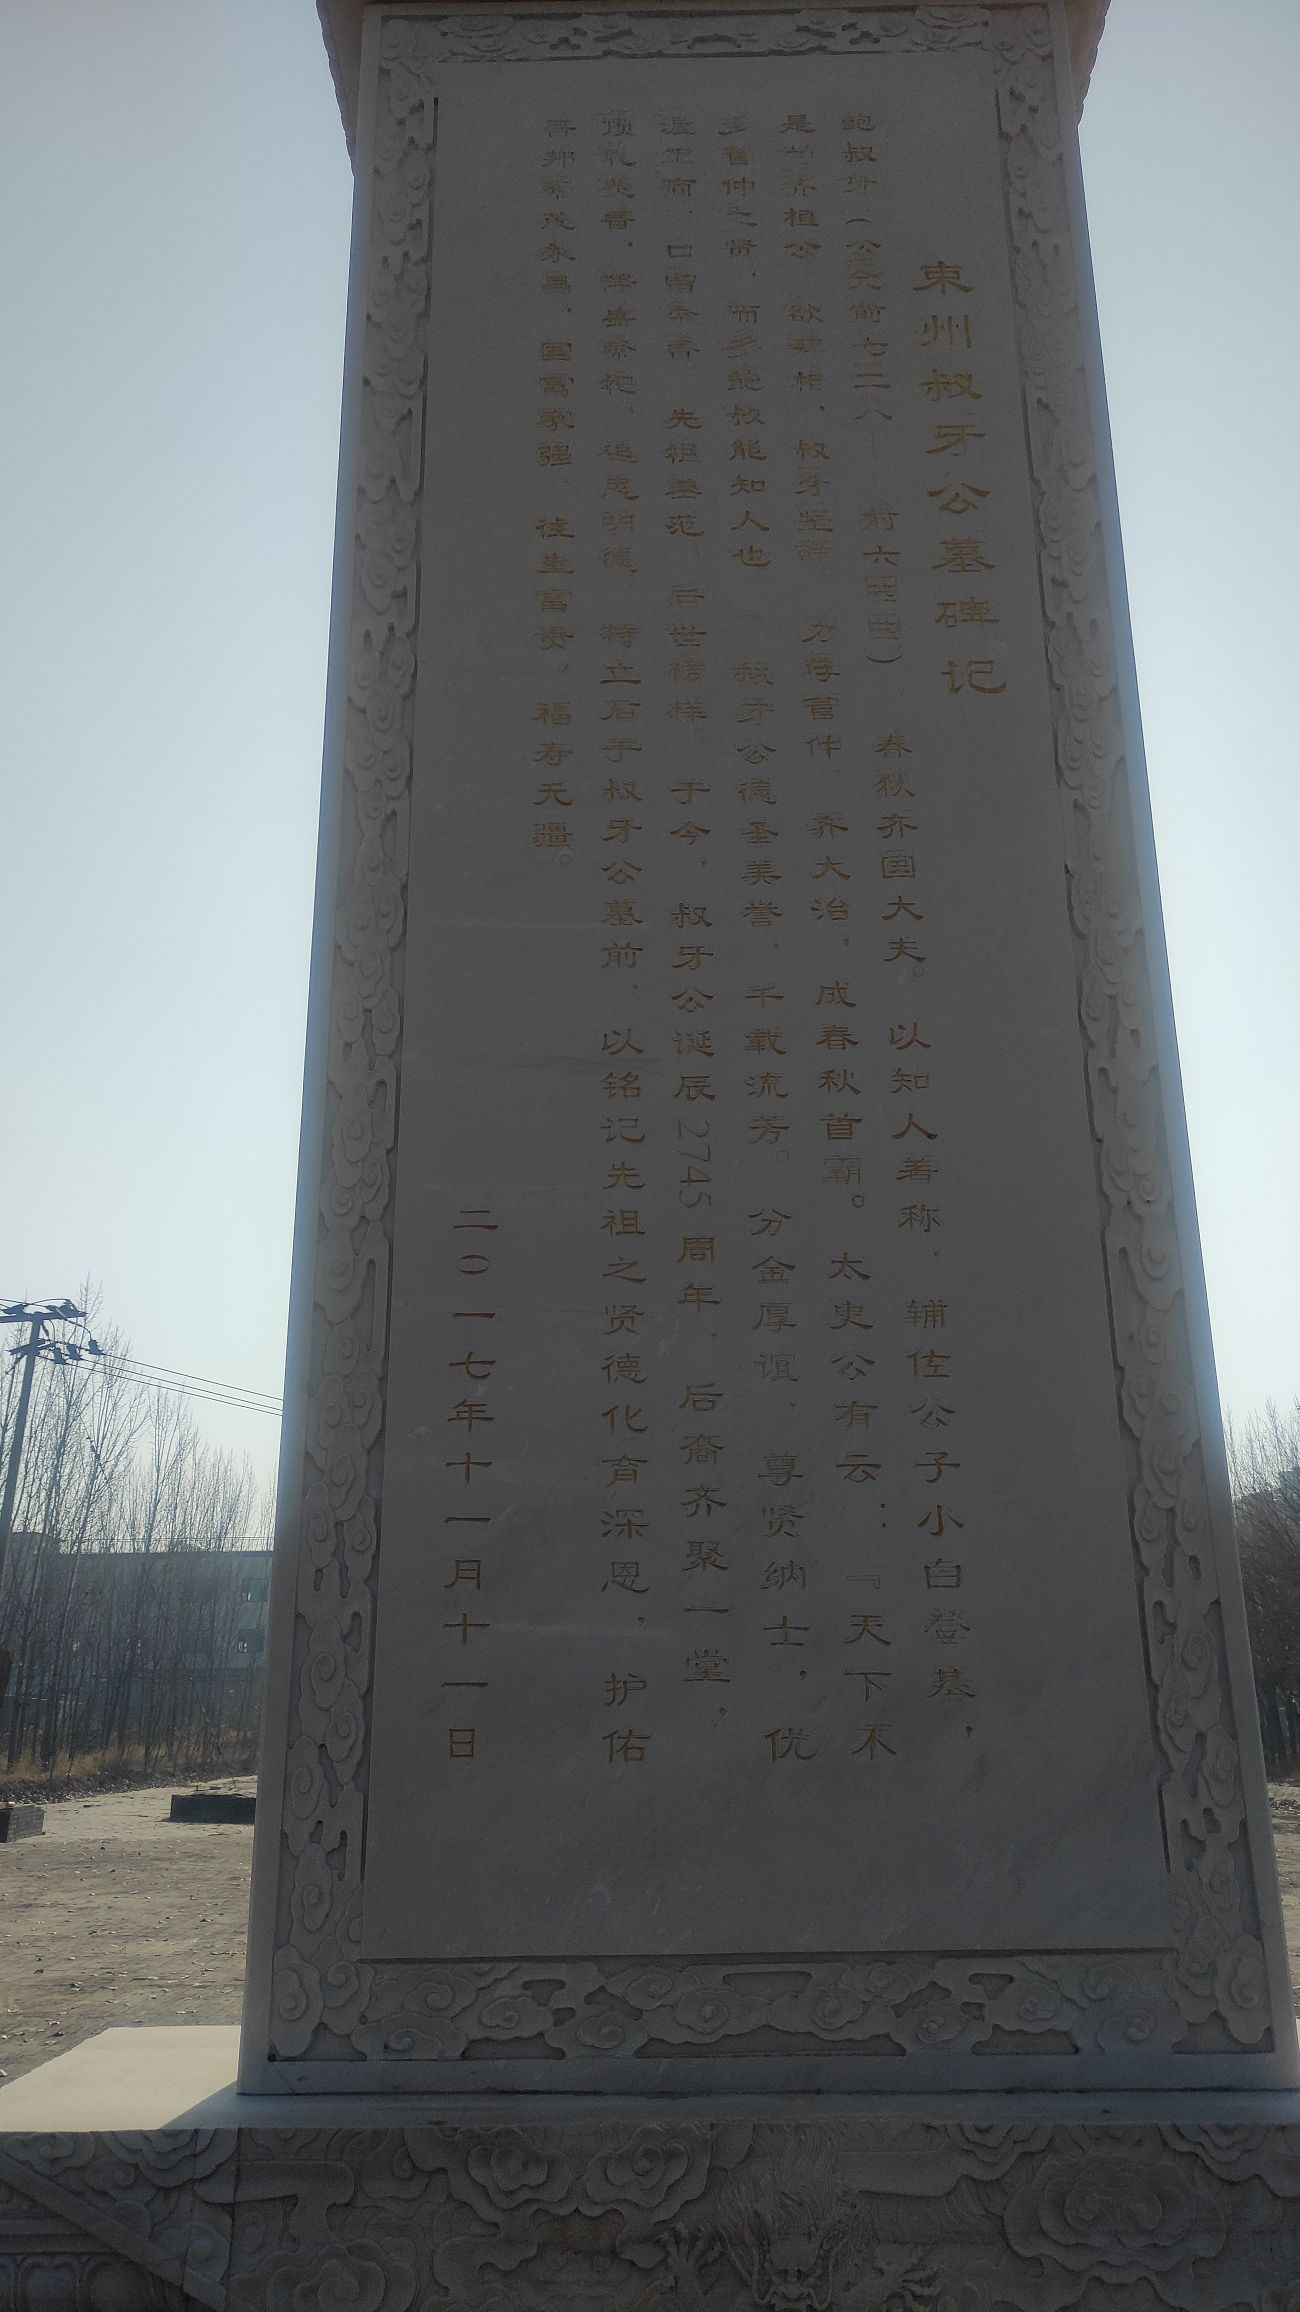 束州叔牙公墓碑记
鲍叔牙（公元前七二八——前六四四）春秋齐国大夫。以知人著称，辅佐公子小白登基，
是为齐桓公 欲拜相，叔牙坚辞，力荐管仲，齐大治，成春秋首霸。太史公有云：『天下不
多管仲之贤，而多鲍叔能知人也』叔牙公德圣美誉，千载流芳。分金厚谊，尊贤纳士，优
渥工商， 先祖垂范，后世榜样 于今，叔牙公诞辰2745周年，后裔齐聚一堂，
追思明德，特立石于叔牙公墓前，以铭记先祖之贤德化育深恩，护佑
吾邦繁茂永昌，国富家强，往生富贵，福寿无疆。
二〇一七年十一月十一日